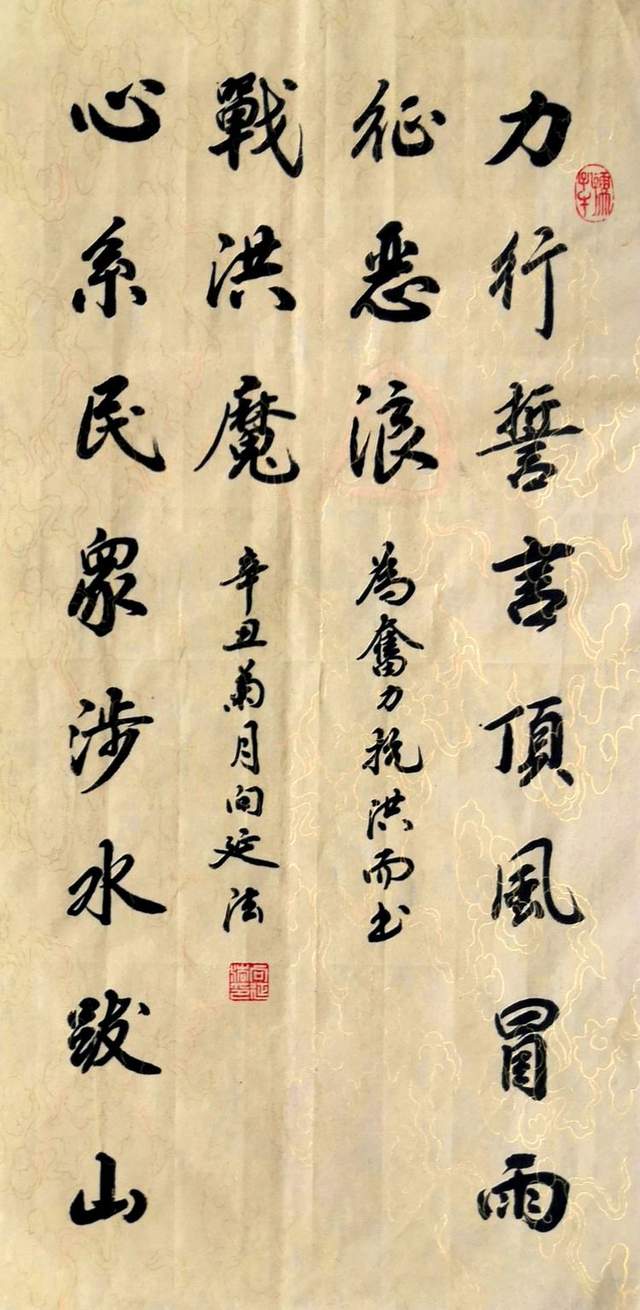 力行誓言頂風冒雨
征恶浪
為奮力抗洪而书
心系民眾涉水跋山
戰洪魔
辛丑菊月向延法
向延法印